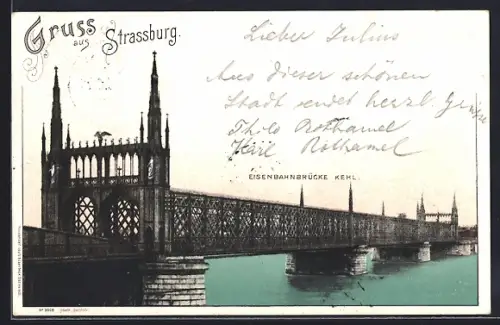 Gruss
aus
Strassburg.
Lieber Julius
Aus dieser schönen
Stadt sendet herzl. Grüße
Thilo Rothamel
Rothamel
EISENBAHNBRÜCKE KEHL.